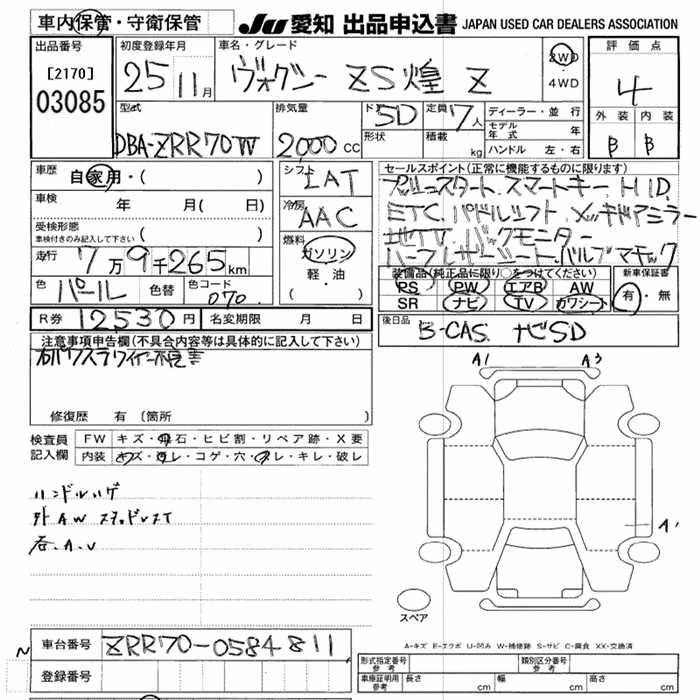 車内保管・守衛保管 JU 愛知 出品申込書 JAPAN USED CAR DEALERS ASSOCIATION
出品番号 [2170] 03085
初度登録年月 25 11月
車名・グレード ヴォクシー ZS煌 Z
2WD ・ 4WD
評価点 4
外装 内装 B B
型式 DBA-ZRR70W
排気量 2000 CC
ド 5D 形状
定員 7人 積載 kg
ディーラー・並行
モデル年式 年
ハンドル 左・右
車歴 自家用・( )
車検 年 月( 日)
受検形態 車検付きのみ記入して下さい ( )
走行 7万9千265km
色 パール 色替 色コード 070
シフト LAT
冷房 AAC
燃料 ガソリン 軽・油
セールスポイント(正常に機能するものに限ります)
プッシュスタート.スマートキー.HID.
ETC.パドルシフト.メッキドアミラー
地デジTV.バックモニター
ハーフレザーシート.バルブマチック
装備品(純正品に限り○をつけてください)
PS PW エアB AW
SR ナビ TV カワシート
新車保証書 有・無
R券 12530円 名変期限 月 日
後日品 B-CAS. ナビSD
注意事項申告欄(不具合内容等は具体的に記入して下さい)
修復歴 有 (箇所
検査員記入欄
FW キズ・飛石・ヒビ割・リペア跡・X要
内装 キズ・汚レ・コゲ・穴・スレ・キレ・破レ
ハンドルハゲ
外AW スタッドレス
A1 A3
A1
スペア
A-キズ E-エクボ U-凹み W-補修跡 S-サビ C-腐食 XX-交換済
N
車台番号 ZRR70-0584811
登録番号
形式指定番号 参考 類別区分番号 参考
車庫証明用 参考 長さ cm 幅 cm 高さ cm